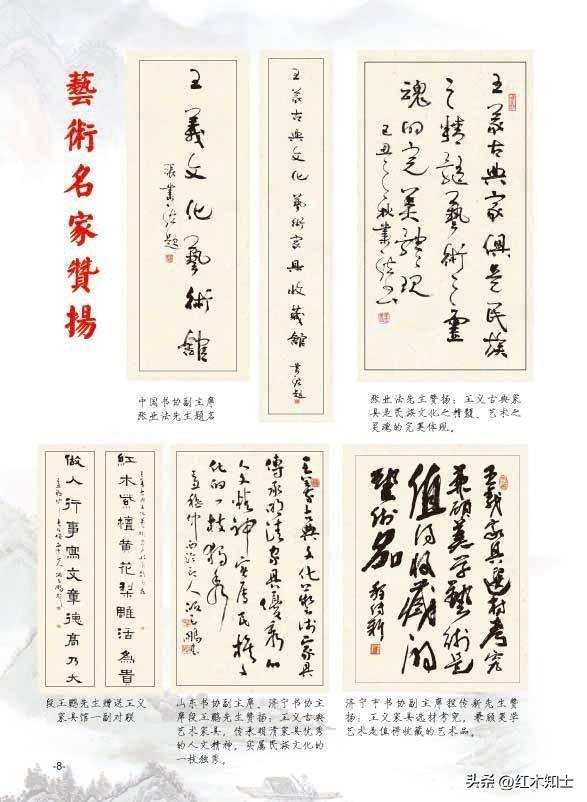 藝術名家贊揚
王義文化藝術館
張業法題
王義古典文化藝術家具收藏館
業法題
王義古典家俱是民族
之精髓藝術之靈
魂的完美體現
己丑之秋業法書
中国书协副主席
张业法先生题名
张业法先生赞扬：王义古典家
具是民族文化之精髓、艺术之
灵魂的完美体现。
紅木紫檀黄花梨雕活為貴
做人行事寫文章德高乃大
王義古典文化藝術家具
傳承明清家具優秀的
人文精神實屬民族文
化的一枝獨秀
王義家具選材考究
兼顧美学藝術是
值得收藏的
藝術品
段玉鹏先生赠送王义
家具馆一副对联
山东书协副主席、济宁书协主
席段玉鹏先生赞扬：王义古典
艺术家具，传承明清家具优秀
的人文精神，实属民族文化的
一枝独秀。
济宁市书协副主席程传新先生赞
扬：王义家具选材考究，兼顾美学
艺术是值得收藏的艺术品。
-8-
头条 @红木知士